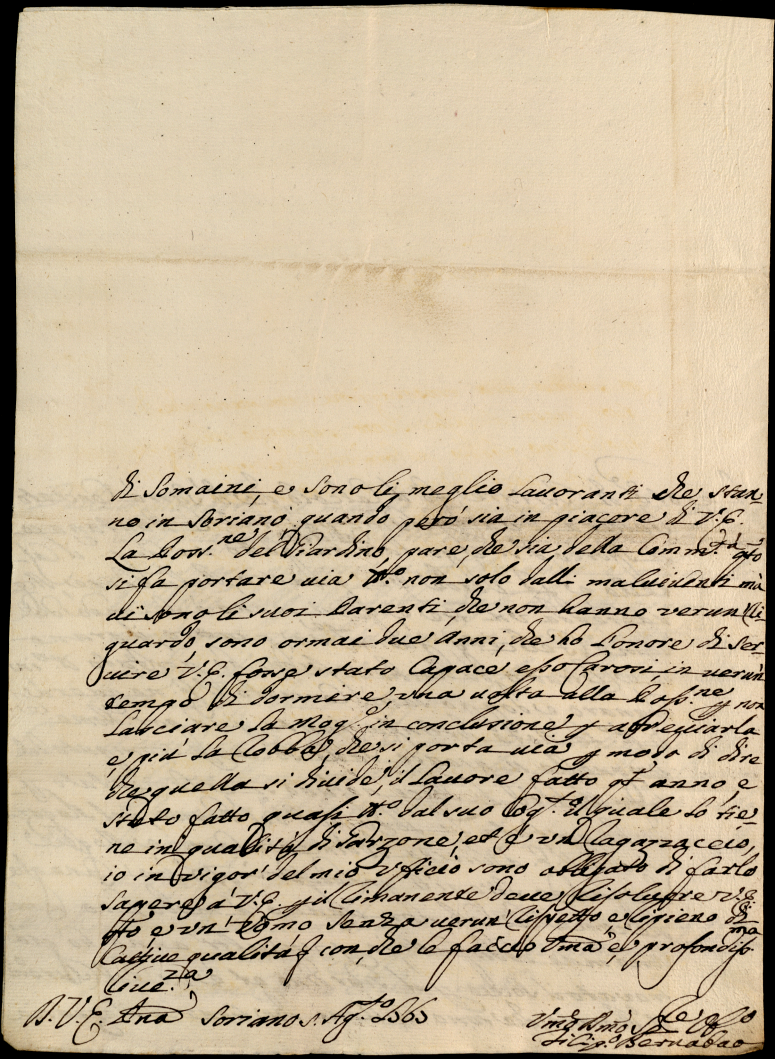 di Somaini, e sono li meglio Lavoranti che stan-
no in Soriano, quando però sia in piacere di V.E.
La Poss.ne del Giardino, pare, che sia della Comm.tà q.to
si fa portare via t.o non solo dalli malviventi mà
vi sono li suoi Parenti, che non hanno verun Ri-
guardo, sono ormai due Anni, che hò l'onore di ser-
vire V.E. fosse stato Capace esso Carosi, in verun
tempo di dormire, una volta alla Poss.ne p non
Lasciare La Mog.e in conclusione p
è più La Robba, che si porta via p modo di dire
che quella si divide, il Lavore fatto q.t anno, è
stato fatto quasi t.o dal suo Cog.t il quale lo tie-
ne in qualità di Garzone, et è un Ragazzaccio,
io in vigor' del mio Ufficio sono obligato di farlo
sapere à V.E. p il Rimanente deve Risolvere V.E.
q.to è un' Uomo senza verun' Rispetto e Ripieno di
qualità con, che le faccio Uma, e profondiss.ma
Rive.za
D.V.E. Soriano s. Ag.to 1763
Um̃o Dmõ Ser.e Oss.o
Filip.o Bernabao